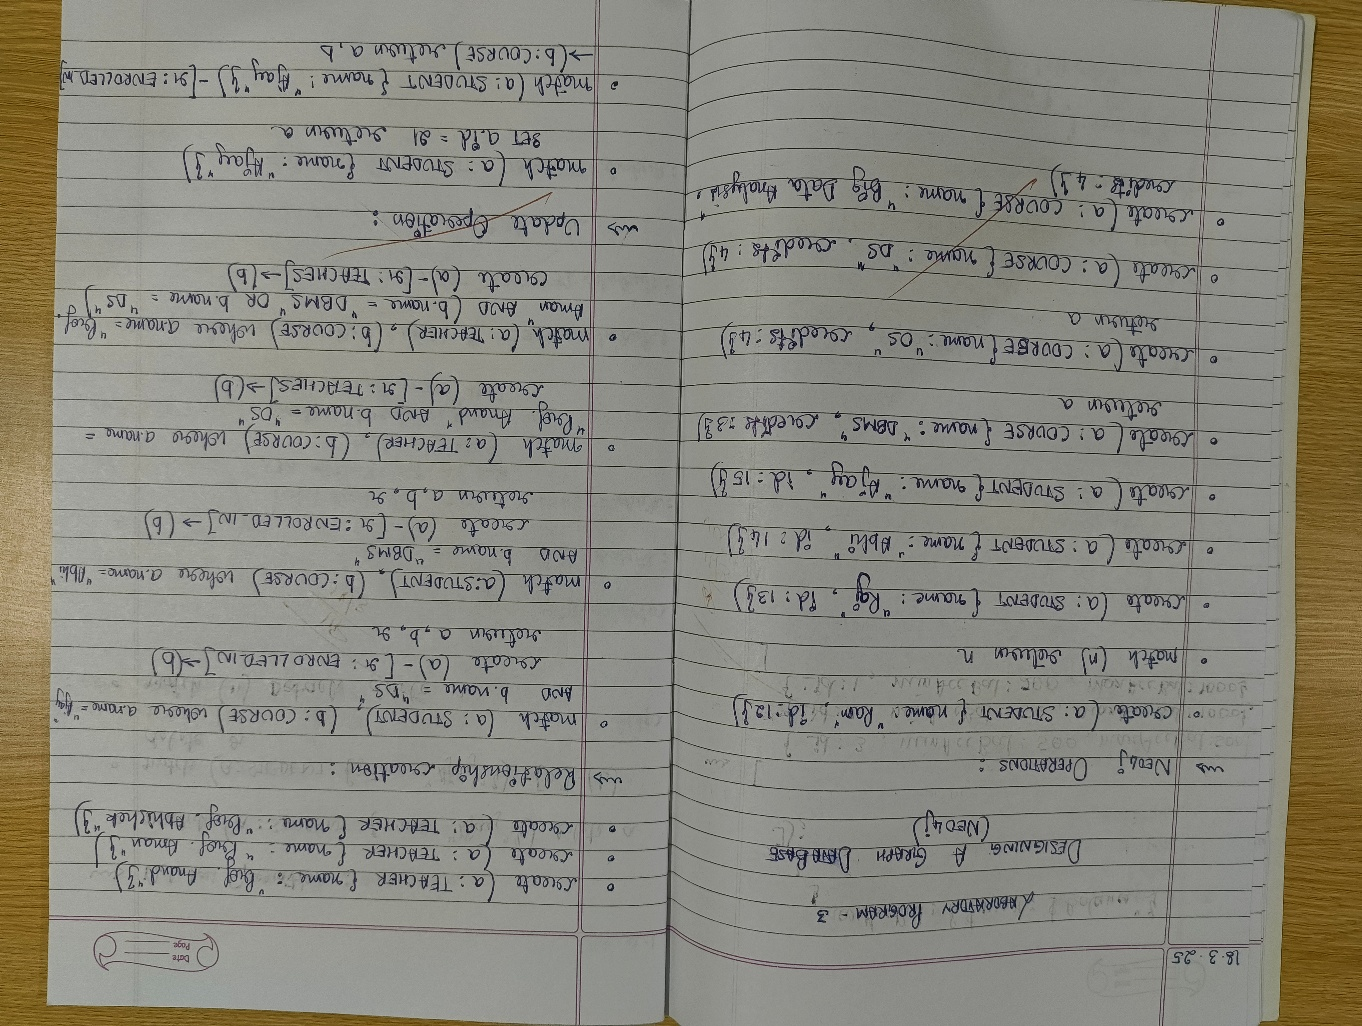 18.3.25
LABORATORY PROGRAM - 3
DESIGNING A GRAPH DATABASE
(NEO4j)
NEO4j OPERATIONS :
create (a: STUDENT {name: "Ram", id: 12})
match (n) return n
create (a: STUDENT {name: "Raj", id: 13})
create (a: STUDENT {name: "Abhi", id: 14})
create (a: STUDENT {name: "Ajay", id: 15})
create (a: COURSE {name: "DBMS", credits: 3})
return a
create (a: COURSE {name: "OS", credits: 4})
return a
create (a: COURSE {name: "DS", credits: 4})
create (a: COURSE {name: "Big Data Analysis",
credits: 4})
Date
Page
create (a: TEACHER {name: "Prof. Anand"})
create (a: TEACHER {name: "Prof. Aman"})
create (a: TEACHER {name: "Prof. Abhishek"})
Relationship creation :
match (a: STUDENT), (b: COURSE) where a.name = "Ajay"
AND b.name = "DS"
create (a) - [r: ENROLLED_IN] -> (b)
return a, b, r
match (a: STUDENT), (b: COURSE) where a.name = "Abhi"
AND b.name = "DBMS"
create (a) - [r: ENROLLED_IN] -> (b)
return a, b, r
match (a: TEACHER), (b: COURSE) where a.name =
"Prof. Anand" AND b.name = "DS"
create (a) - [r: TEACHES] -> (b)
match (a: TEACHER), (b: COURSE) where a.name = "Prof.
Aman" AND (b.name = "DBMS" OR b.name = "DS")
create (a) - [r: TEACHES] -> (b)
Update Operation :
match (a: STUDENT {name: "Ajay"})
SET a.id = 21 return a
match (a: STUDENT {name: "Ajay"}) - [r: ENROLLED_IN]
-> (b: COURSE) return a, b